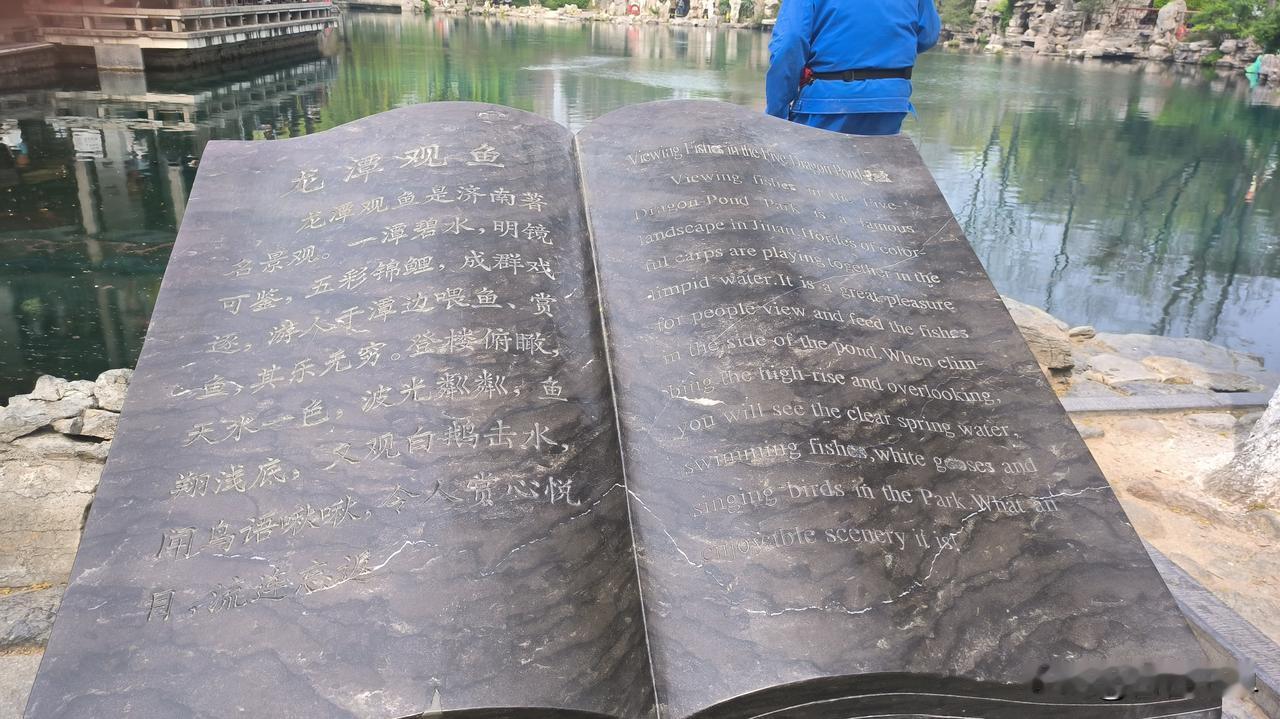 龙潭观鱼
龙潭观鱼是济南著
名景观。一潭碧水,明镜
可鉴,五彩锦鲤,成群戏
逐,游人于潭边喂鱼、赏
鱼,其乐无穷。登楼俯瞰,
天水一色,波光粼粼,鱼
翔浅底,又观白鹅击水,
闻鸟语啾啾,令人赏心悦
目,流连忘返
Viewing Fishes in the Five Dragon Pond
Viewing fishes in the Five-
Dragon Pond Park is a famous
landscape in Jinan.Hordes of color-
ful carps are playing together in the
limpid water.It is a great pleasure
for people view and feed the fishes
in the side of the pond.When clim-
bing the high-rise and overlooking,
you will see the clear spring water,
swimming fishes,white gooses and
singing birds in the Park.What an
enjoyable scenery it is!